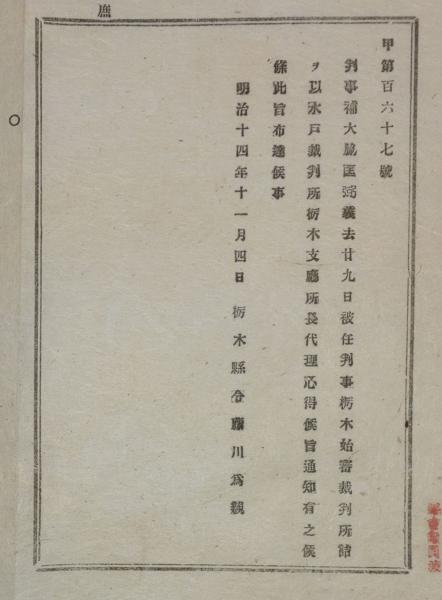 甲第百六十七號
判事補大脇匡弼義去廿九日被任判事栃木始審裁判所詰
ヲ以水戸裁判所栃木支廳所長代理心得候旨通知有之候
條此旨布達候事
明治十四年十一月四日 栃木縣令藤川爲親